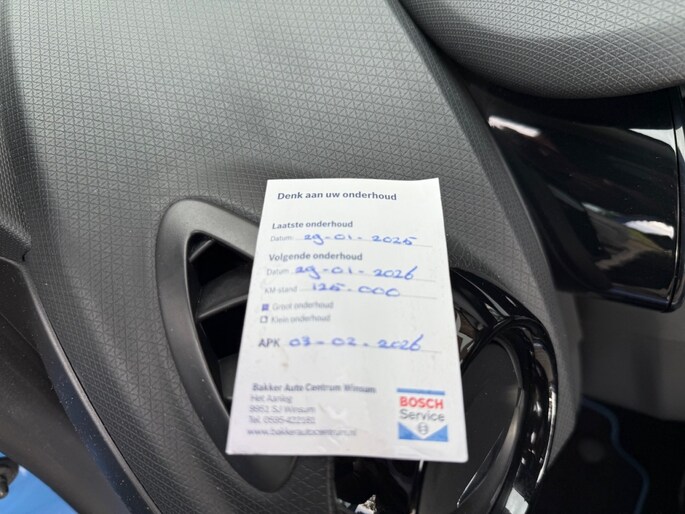 Denk aan uw onderhoud
Laatste onderhoud
Datum 29-01-2025
Volgende onderhoud
Datum 29-01-2026
KM-stand 125.000
Groot onderhoud
Klein onderhoud
APK 03-02-2026
Bakker Auto Centrum Winsum
Het Aanleg
9951 SJ Winsum
Tel. 0595-422181
www.bakkerautocentrum.nl
BOSCH
Service